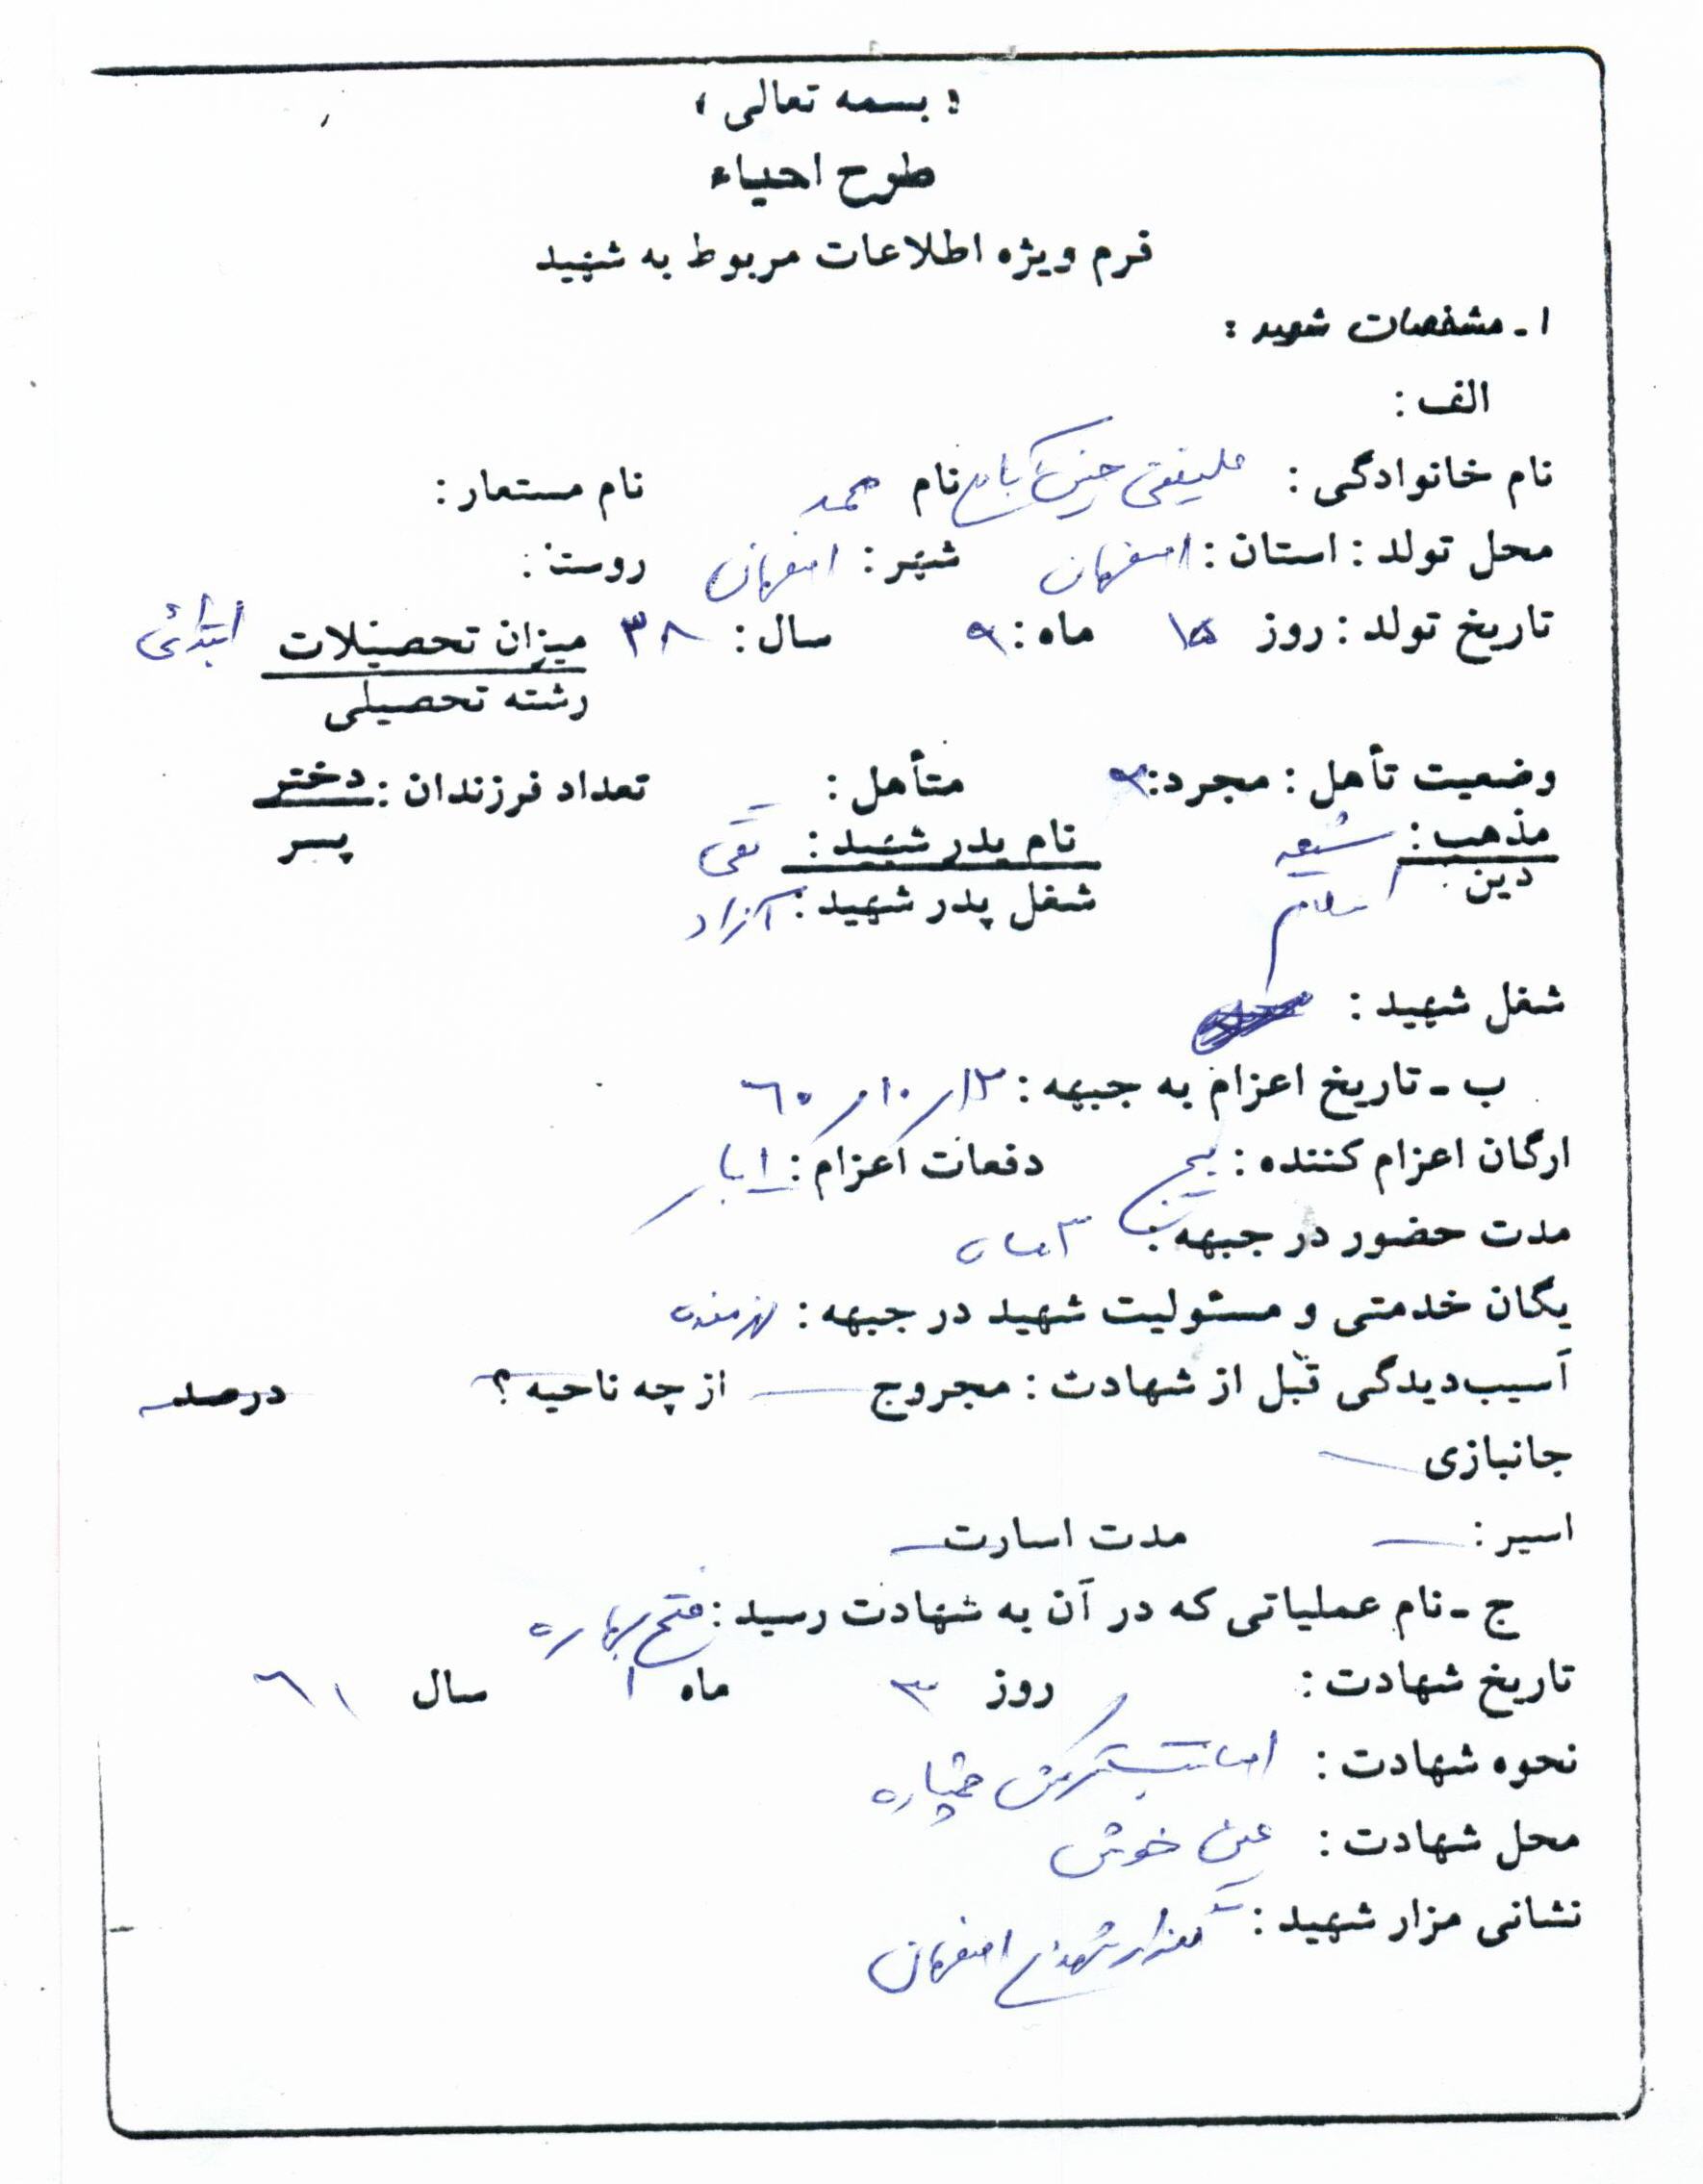 « بسمه تعالی »
طرح احیاء
فرم ویژه اطلاعات مربوط به شهید
۱ - مشخصات شهید :
الف :
نام خانوادگی : نام محمد نام مستعار :
محل تولد : استان : اصفهان شهر : اصفهان روستا :
تاریخ تولد : روز ۱۵ ماه : ۹ سال : ۳۸ میزان تحصیلات ابتدائی
رشته تحصیلی
وضعیت تأهل : مجرد : متأهل : تعداد فرزندان : دختر
پسر
مذهب : شیعه نام پدر شهید : تقی
دین : اسلام شغل پدر شهید : آزاد
شغل شهید :
ب - تاریخ اعزام به جبهه : ۶۰/۱۰/۱۲
ارگان اعزام کننده : بسیج دفعات اعزام : ۱ بار
مدت حضور در جبهه : ۳ ماه
یگان خدمتی و مسئولیت شهید در جبهه : رزمنده
آسیب‌دیدگی قبل از شهادت : مجروح — از چه ناحیه ؟ درصد
جانبازی —
اسیر : — مدت اسارت —
ج - نام عملیاتی که در آن به شهادت رسید :
تاریخ شهادت : روز ۳ ماه ۱ سال ۶۱
نحوه شهادت : اصابت ترکش خمپاره
محل شهادت : عین خوش
نشانی مزار شهید : گلزار شهدای اصفهان